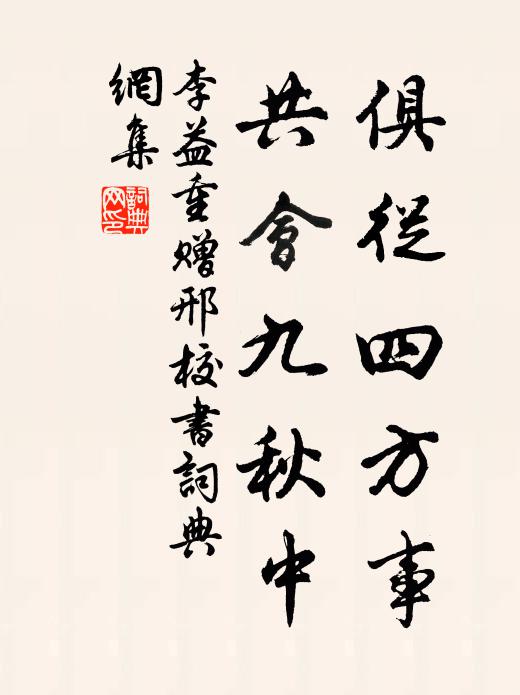 俱從四方事
共會九秋中
李益重贈邢校書詞典
網集
詞典網印